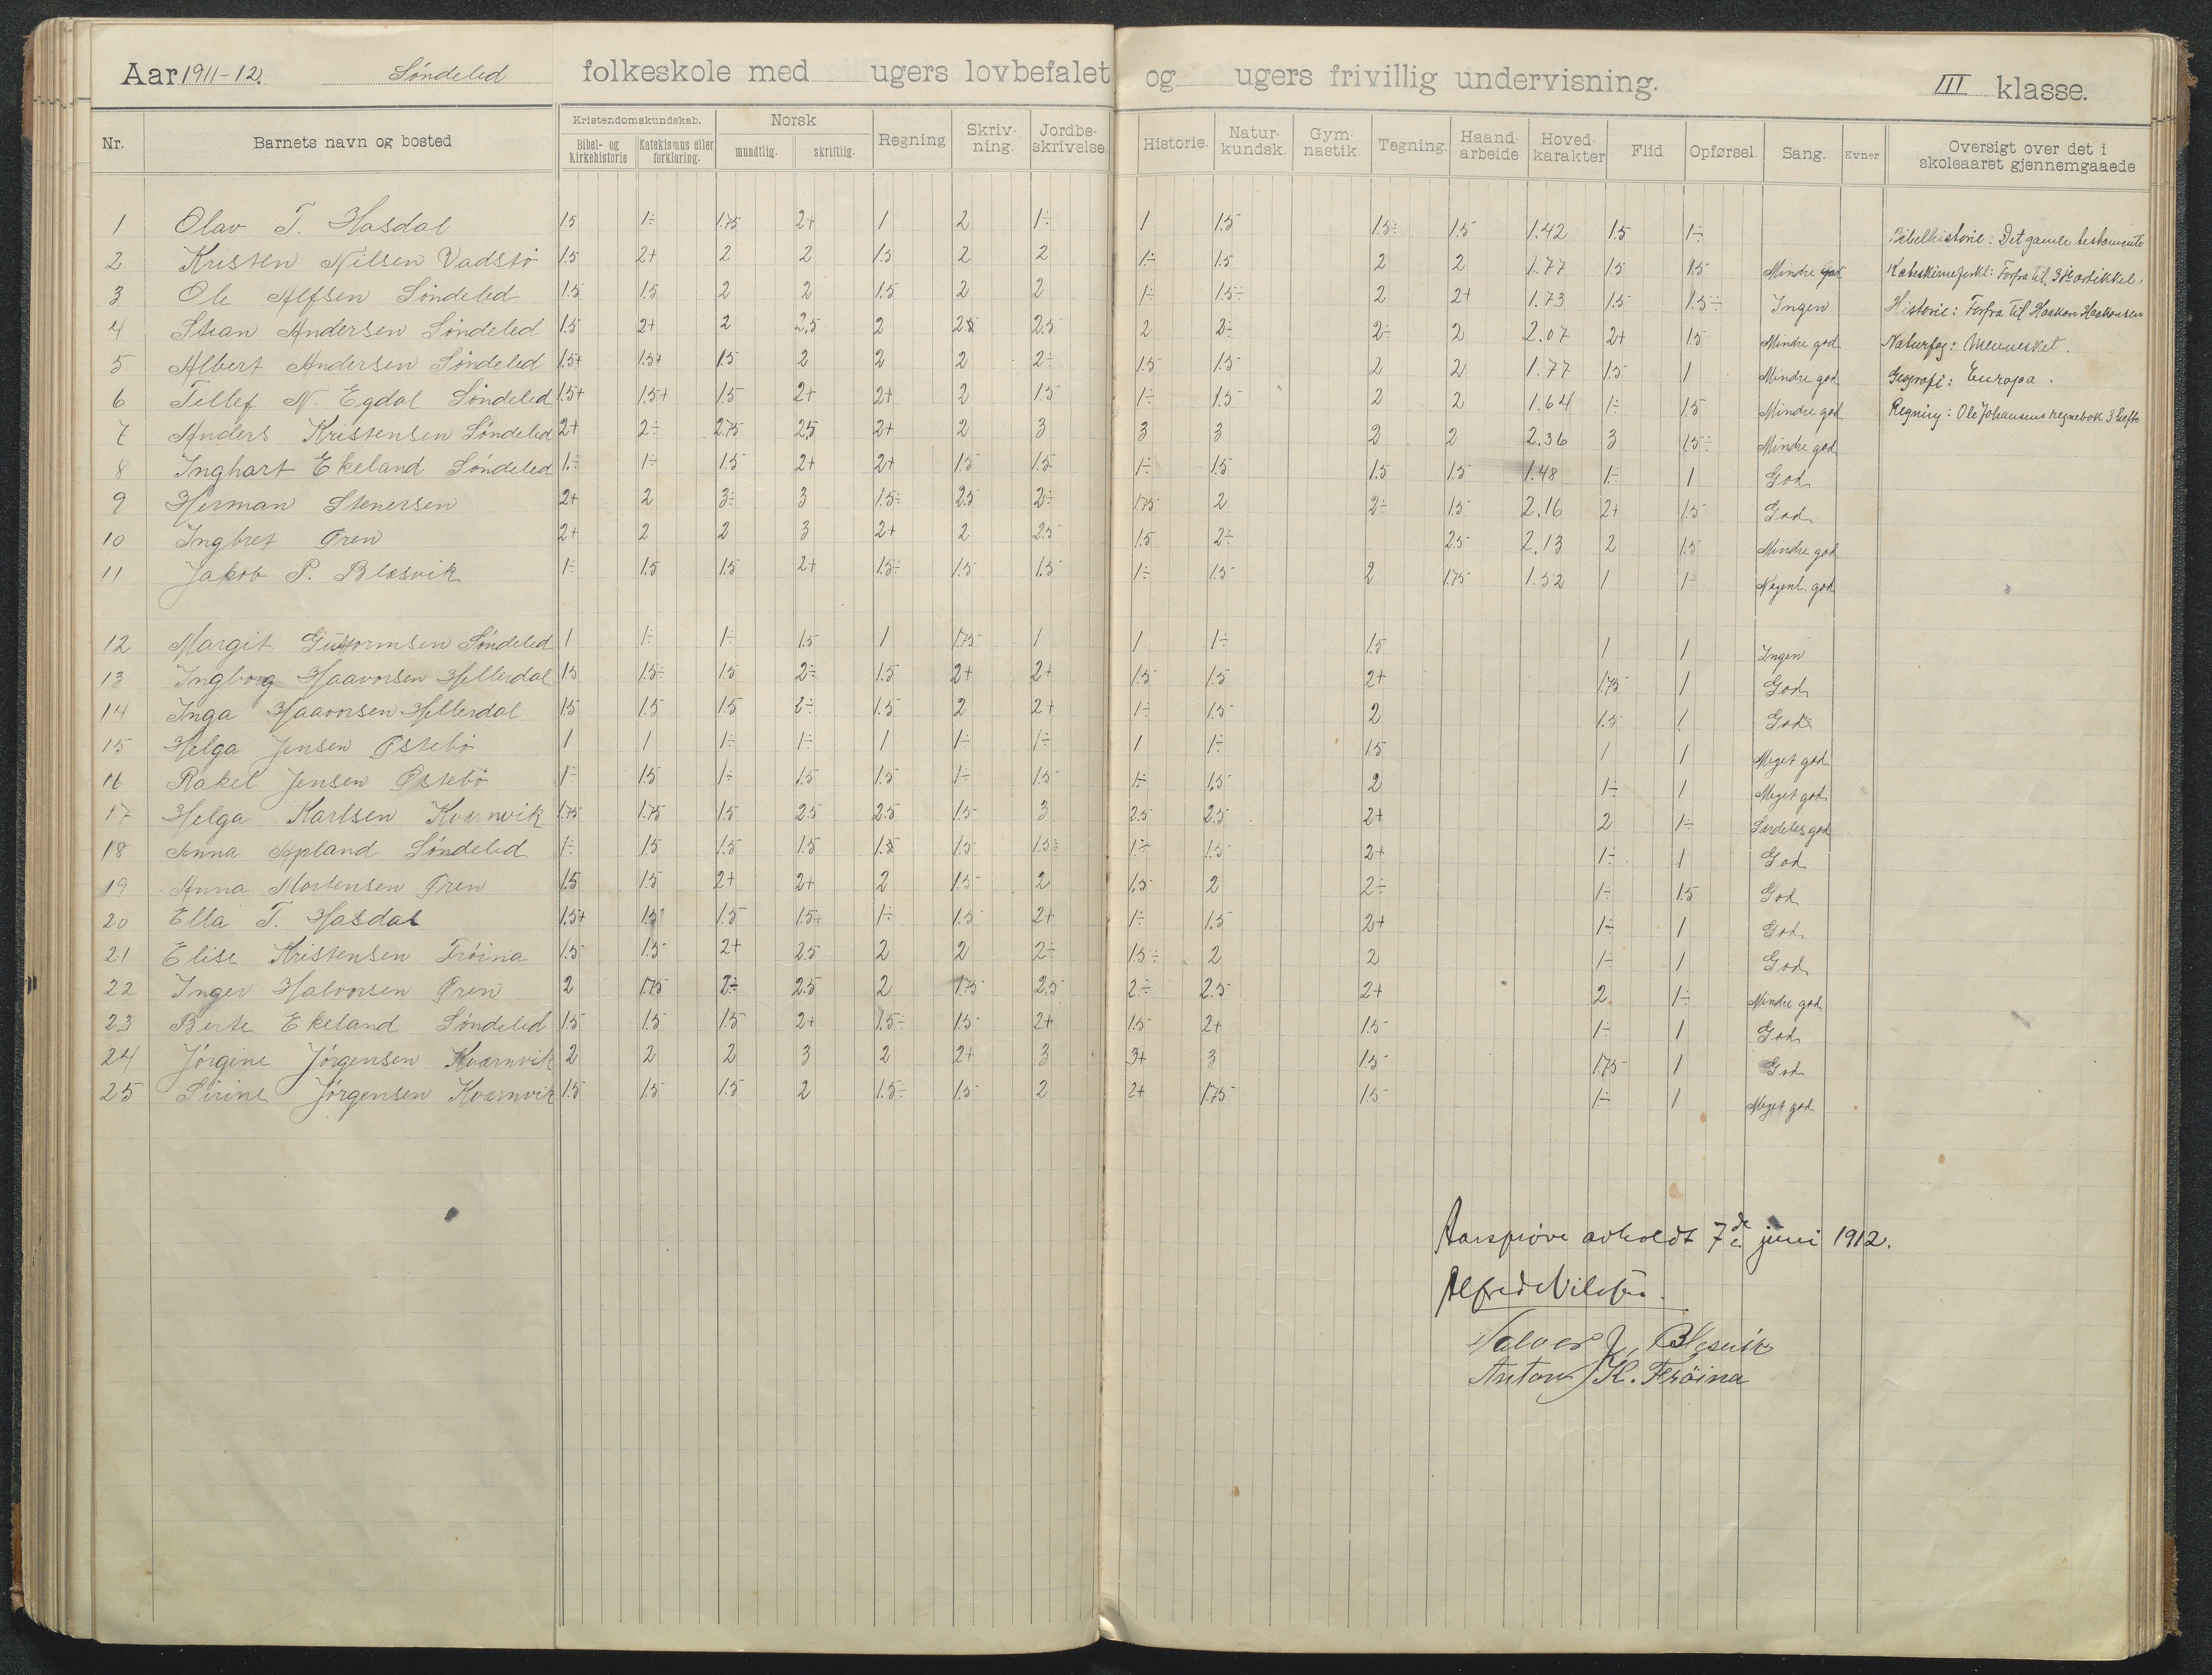 Aar 1911-12. Søndeled folkeskole med ugers lovbefalet og ugers frivillig undervisning. III klasse.
Nr. Barnets navn og bosted Kristendomskundskab. Bibel- og Kirkehistorie Katekismus eller forklaring. Norsk mundtlig. skriftlig. Regning Skriv-ning. Jordbe-skrivelse. Historie. Natur-kundsk. Gym-nastik Tegning. Haand-arbeide Hoved-karakter Flid Opførsel. Sang. Evner Oversigt over det i skoleaaret gjennemgaaede
1 Olav T. Hasdal 1.5 1÷ 1.75 2+ 1 2 1÷ 1 1.5 1.5÷ 1.5 1.42 1.5 1÷
Bibelhistorie: Det gamle testamente
2 Kristen Nilsen Vadstø 1.5 2+ 2 2 1.5 2 2 1÷ 1.5 2 2 1.77 1.5 1.5 Mindre god
Kateskismeforkl: Forfra til 3die artikkel.
3 Ole Alfsen Søndeled 1.5 1.5 2 2 1.5 2 2 1÷ 1.5÷ 2 2+ 1.73 1.5 1.5÷ Ingen
Historie: Forfra til Haakon Haakonsen
4 Stian Andersen Søndeled 1.5 2+ 2 2,5 2 2 2.5 2 2÷ 2÷ 2 2.07 2+ 1.5 Mindre god
Naturfag: Mennesket.
5 Albert Andersen Søndeled 1.5+ 1.5+ 1.5 2 2 2 2÷ 1.5 1.5 2 2 1.77 1.5 1 Mindre god
Geografi: Europa.
6 Tellef N. Egdal Søndeled 1.5+ 1.5+ 1.5 2+ 2+ 2 1.5 1÷ 1.5 2 2 1.64 1÷ 1.5 Mindre god
Regning: Ole Johansens regnebok 3 hefte
7 Anders Kristensen Søndeled 2+ 2÷ 2.75 2,5 2+ 2 3 3 3 2 2 2.36 3 1.5÷ Mindre god
8 Inghart Ekeland Søndeled 1÷ 1÷ 1.5 2+ 2+ 1.5 1.5 1÷ 1.5 1.5 1.5 1.48 1÷ 1 God
9 Herman Stenersen 2+ 2 3÷ 3 1.5÷ 2.5 2÷ 1.75 2 2÷ 1.5 2.16 2+ 1.5 God
10 Ingbret Øren 2+ 2 2 3 2+ 2 2.5 1.5 2÷ 2.5 2.13 2 1.5 Mindre god
11 Jakob P. Blesvik 1÷ 1.5 1.5 2+ 1.5÷ 1.5 1.5 1÷ 1.5 2 1.75 1.52 1 1÷ Nogenl. god
12 Margit Guttormsen Søndeled 1 1÷ 1÷ 1.5 1 1.75 1 1 1÷ 1.5 1 1 Ingen
13 Ingborg Haavorsen Hellerdal 1.5 1.5÷ 1.5 2÷ 1.5 2+ 2+ 1.5 1.5 2+ 1.75 1 God
14 Inga Haavorsen Hellerdal 1.5 1.5 1.5 2÷ 1.5 2 2+ 1÷ 1.5 2 1.5 1 God
15 Helga Jensen Østebø 1 1 1÷ 1÷ 1 1÷ 1÷ 1 1÷ 1.5 1 1 Meget god
16 Rakel Jensen Østebø 1÷ 1.5 1÷ 1.5 1.5 1÷ 1.5 1÷ 1.5 2 1÷ 1 Meget god
17 Helga Karlsen Kvernvik 1.75 1.75 1.5 2.5 2.5 1.5 3 2.5 2.5 2+ 2 1÷ Særdeles god
18 Anna Apland Søndeled 1÷ 1.5 1.5 1.5 1.5 1.5 1.5÷ 1÷ 1.5 2+ 1÷ 1 God
19 Anna Mortensen Øren 1.5 1.5 2+ 2+ 2 1.5 2 1.5 2 2÷ 1÷ 1.5 God
20 Ella T. Hasdal 1.5+ 1.5 1.5 1.5+ 1÷ 1.5 2+ 1÷ 1.5 2+ 1÷ 1 God
21 Elise Kristensen Trøina 1.5 1.5 2+ 2.5 2 2 2÷ 1.5÷ 2 2 1÷ 1 God
22 Inger Halvorsen Øren 2 1.75 2÷ 2.5 2 1.75 2.5 2÷ 2.5 2+ 2 1÷ Mindre god
23 Berte Ekeland Søndeled 1.5 1.5 1.5 2+ 1.5÷ 1.5 2+ 1.5 2+ 1.5 1÷ 1 God
24 Jørgine Jørgensen Kvernvik 2 2 2 3 2 2+ 3 3+ 3 1.5 1.75 1 God
25 Sirine Jørgensen Kvernvik 1.5 1.5 1.5 2 1.5÷ 1.5 2 2+ 1.75 1.5 1÷ 1 Meget god
Aarsprøve avholdt 7de juni 1912.
Alfred Nilsen.
Halvor J. Blesvik
Anton K. Trøina